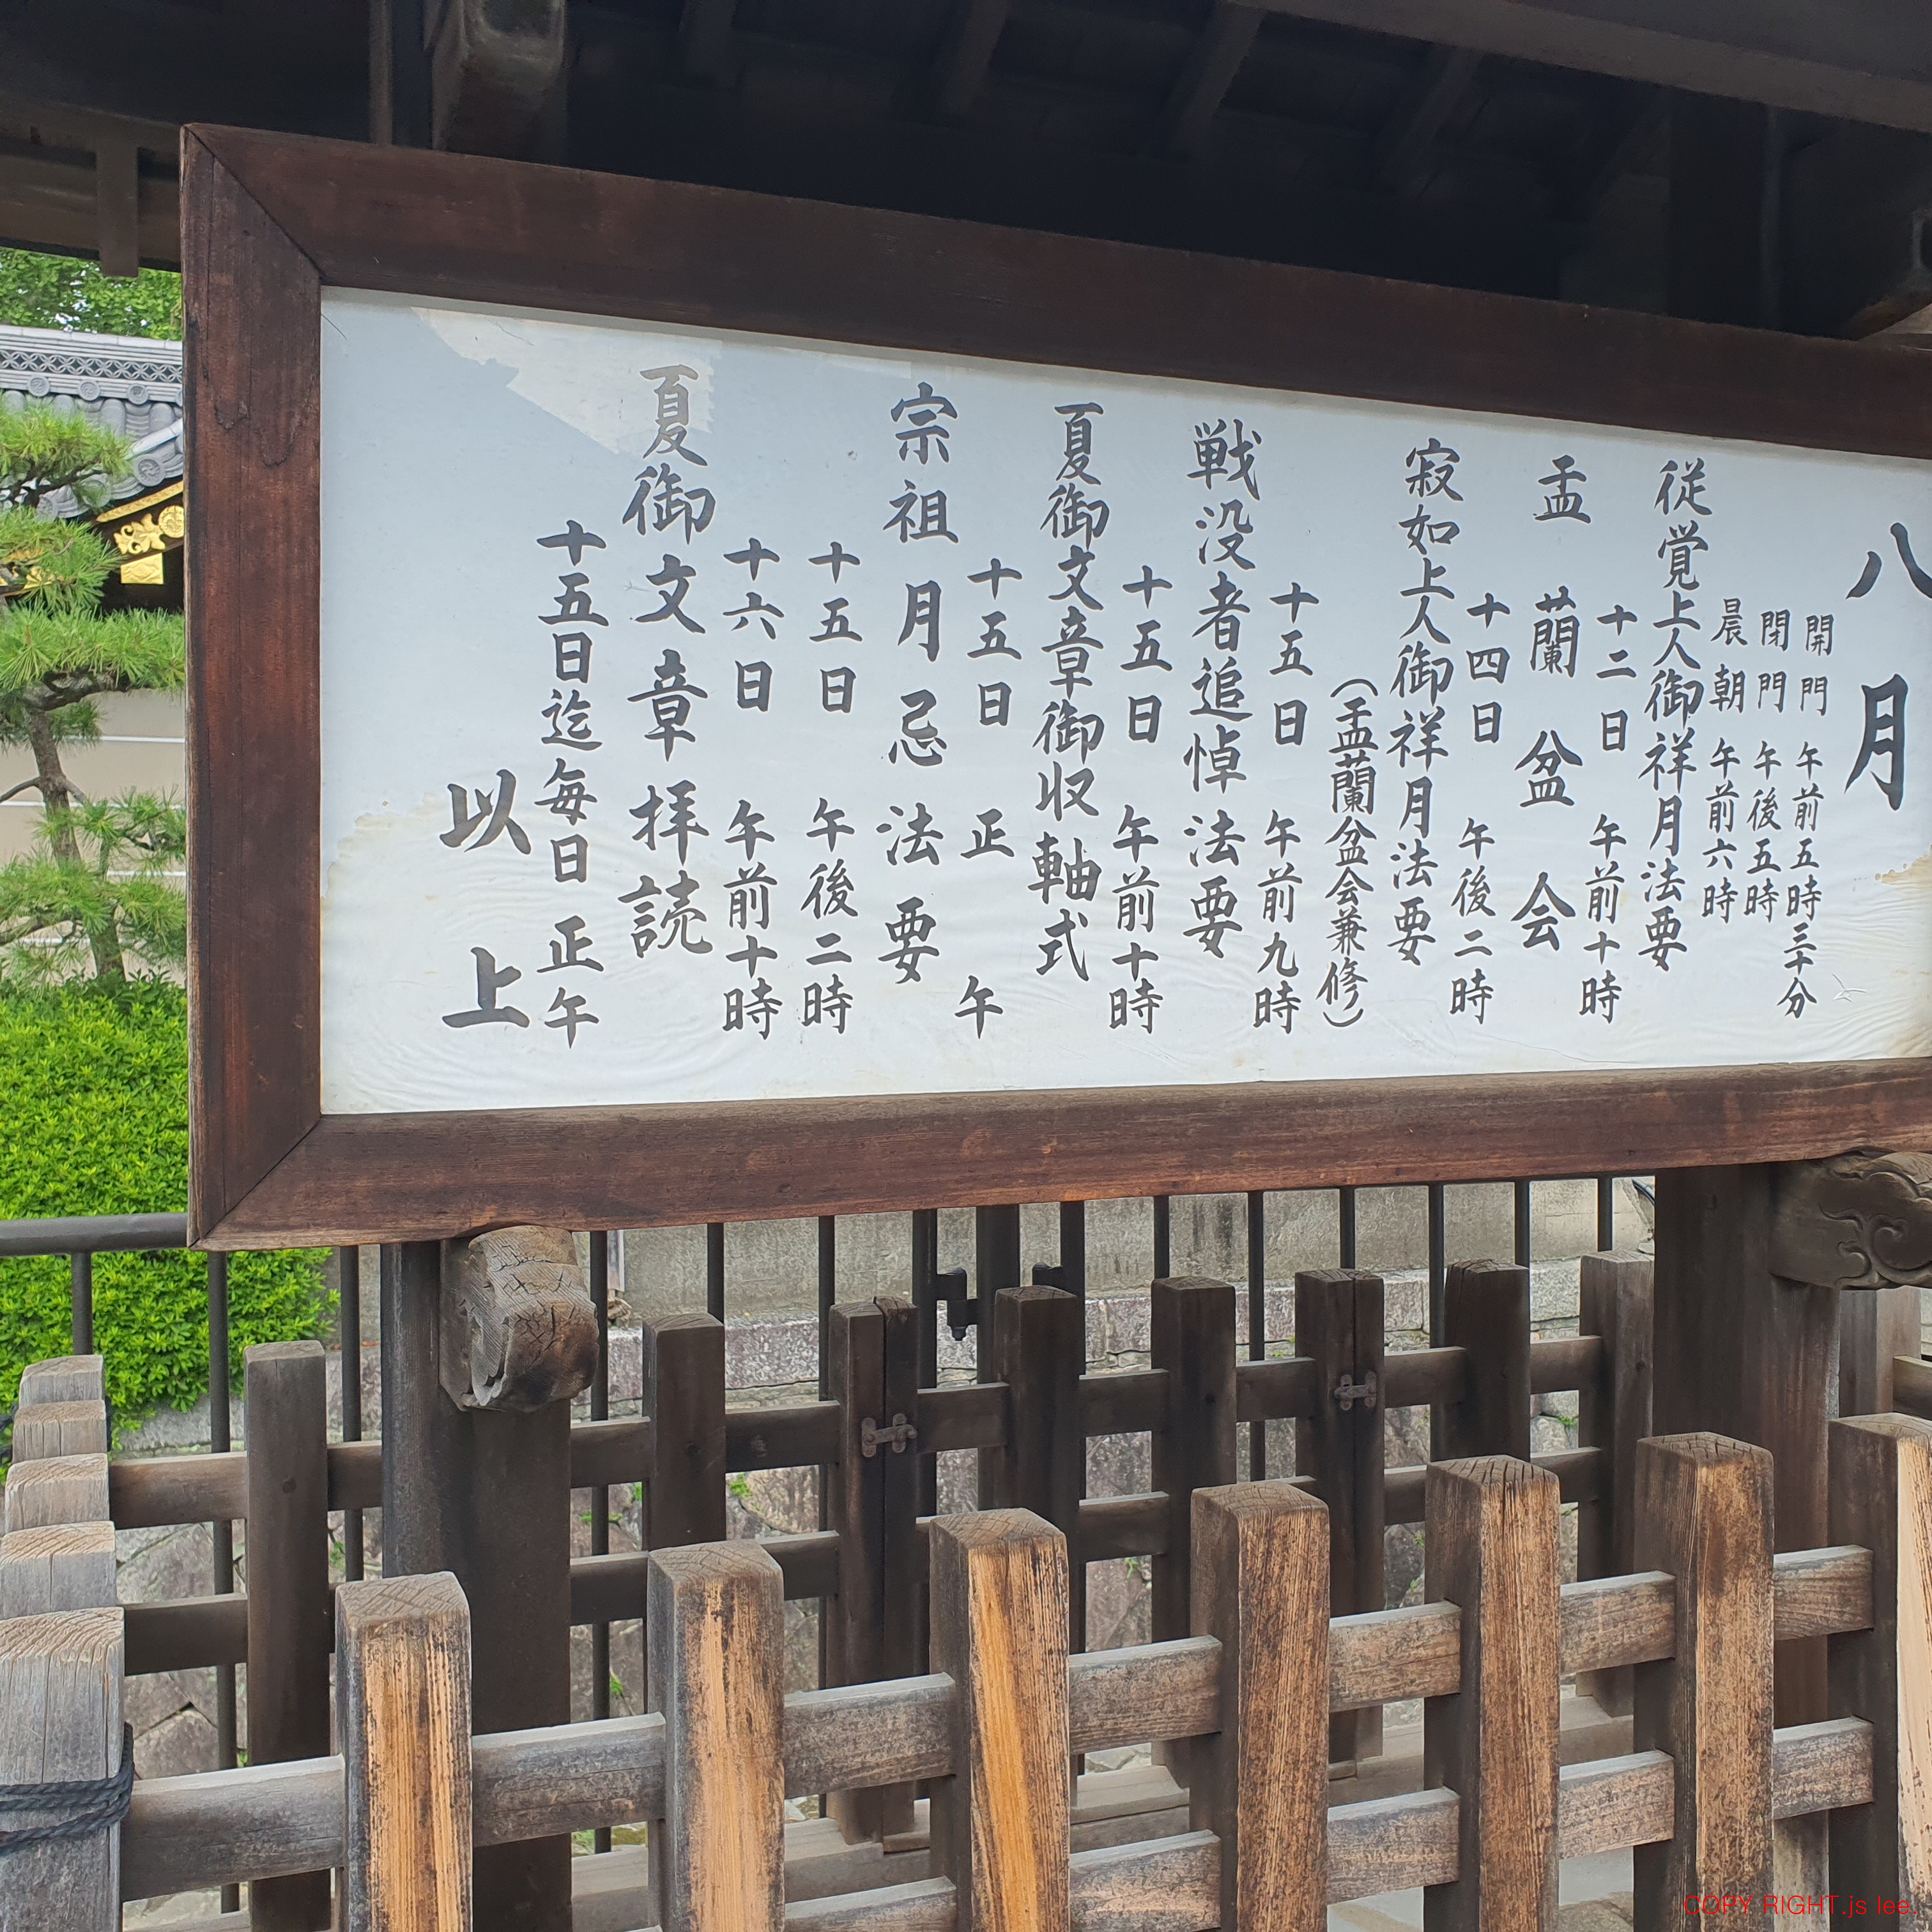 八月
開門 午前五時三十分
閉門 午後五時
晨朝 午前六時
従覚上人御祥月法要
十二日 午前十時
盂蘭盆会
十四日 午後二時
寂如上人御祥月法要
(盂蘭盆会兼修)
十五日 午前九時
戦没者追悼法要
十五日 午前十時
夏御文章御収軸式
十五日 正午
宗祖月忌法要
十五日 午後二時
十六日 午前十時
夏御文章拝読
十五日迄毎日 正午
以上
COPY RIGHT.js lee.